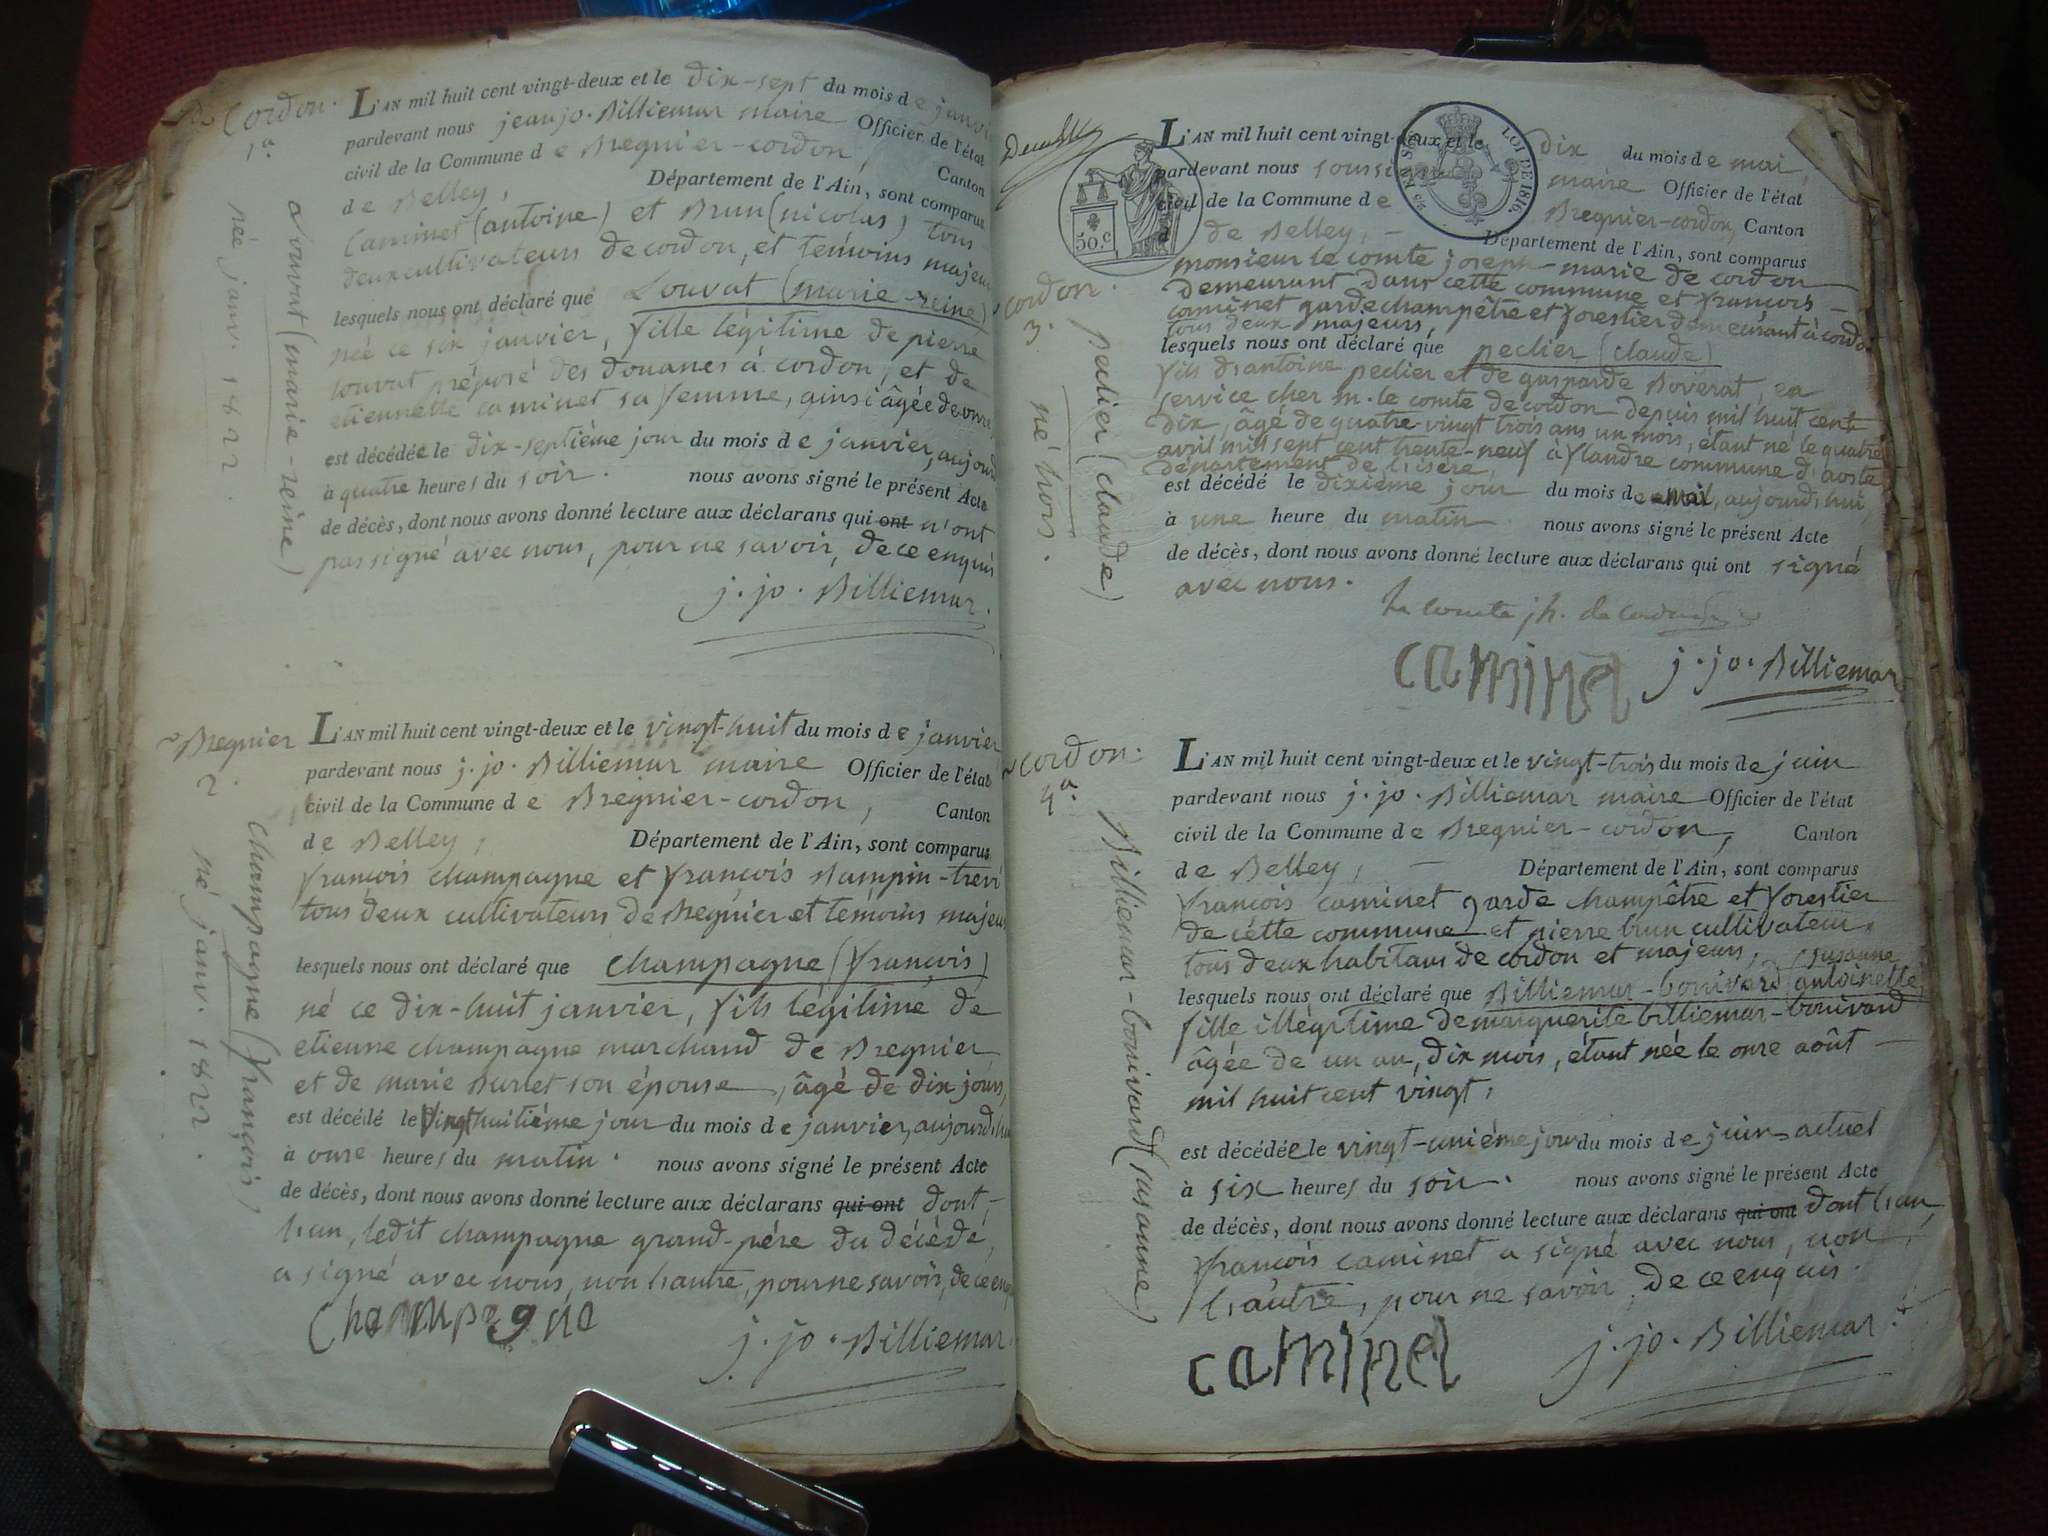 Cordon.
1ª.
Louvat (marie-reine)
née janv. 1822.
L'AN mil huit cent vingt-deux et le dix-sept du mois de janvi
pardevant nous jean jo. Billiemar maire Officier de l'état
civil de la Commune de Bregnier-cordon, Canton
de Belley, Département de l'Ain, sont comparus
Caminet (antoine) et Brun (nicolas) tous
deux cultivateurs de cordon, et témoins majeu
lesquels nous ont déclaré que Louvat (marie-reine)
née ce six janvier, fille légitime de pierre
Louvat préposé des douanes à cordon, et de
etiennette caminet sa femme, ainsi âgée de onze
est décédée le dix-septième jour du mois de janvier, aujourd
à quatre heures du soir. nous avons signé le présent Acte
de décès, dont nous avons donné lecture aux déclarans qui ont n'ont
pas signé avec nous, pour ne savoir, de ce enquis
j. jo. Billiemar.
Bregnier
2.
Champagne (françois)
né janv. 1822.
L'AN mil huit cent vingt-deux et le vingt-huit du mois de janvier
pardevant nous j. jo. Billiemar maire Officier de l'état
civil de la Commune de Bregnier-cordon, Canton
de Belley, Département de l'Ain, sont comparus
françois champagne et françois Nampin-trevi
tous deux cultivateurs de Bregnier et témoins majeu
lesquels nous ont déclaré que champagne (françois)
né ce dix-huit janvier, fils légitime de
etienne champagne marchand de Bregnier
et de marie Burlet son épouse, âgé de dix jours,
est décédé le vingthuitième jour du mois de janvier, aujourd'hu
à onze heures du matin. nous avons signé le présent Acte
de décès, dont nous avons donné lecture aux déclarans qui ont dont,
l'un, ledit champagne grand-père du décédé,
a signé avec nous, non l'autre, pour ne savoir, de ce enq
Champagne
j. jo. Billiemar.
50.c
LOI DE 1816.
cordon.
3.
peclier (claude)
né hors.
L'AN mil huit cent vingt-deux et le dix du mois de mai,
pardevant nous soussigné maire Officier de l'état
civil de la Commune de Bregnier-cordon, Canton
de Belley, Département de l'Ain, sont comparus
monsieur le comte joseph-marie de cordon
demeurant dans cette commune et françois
caminet garde champêtre et forestier demeurant à cordon
tous deux majeurs,
lesquels nous ont déclaré que peclier (claude)
fils d'antoine peclier et de gasparde Boverat, en
service chez m. le comte de cordon depuis mil huit cent
dix, âgé de quatre-vingt trois ans un mois, étant né le quatre
avril mil sept cent trente-neuf à flandre commune d'aoste
département de l'isère,
est décédé le dixième jour du mois de mai, aujourd'hui
à une heure du matin nous avons signé le présent Acte
de décès, dont nous avons donné lecture aux déclarans qui ont signé
avec nous.
Le comte jh. de cordon
caminet
j. jo. Billiemar
cordon.
4ª.
Billiemar-bonivard (susanne)
L'AN mil huit cent vingt-deux et le vingt-trois du mois de juin
pardevant nous j. jo. Billiemar maire Officier de l'état
civil de la Commune de Bregnier-cordon, Canton
de Belley, Département de l'Ain, sont comparus
françois caminet garde champêtre et forestier
de cette commune et pierre brun cultivateur,
tous deux habitans de cordon et majeurs,
lesquels nous ont déclaré que Billiemar-bonivard (susanne antoinette)
fille illégitime de marguerite billiemar-bonivard
âgée de un an, dix mois, étant née le onze août
mil huit cent vingt,
est décédée le vingt-unième jour du mois de juin actuel
à six heures du soir. nous avons signé le présent Acte
de décès, dont nous avons donné lecture aux déclarans qui ont dont l'un,
françois caminet a signé avec nous, non
l'autre, pour ne savoir, de ce enquis.
caminet
j. jo. Billiemar.